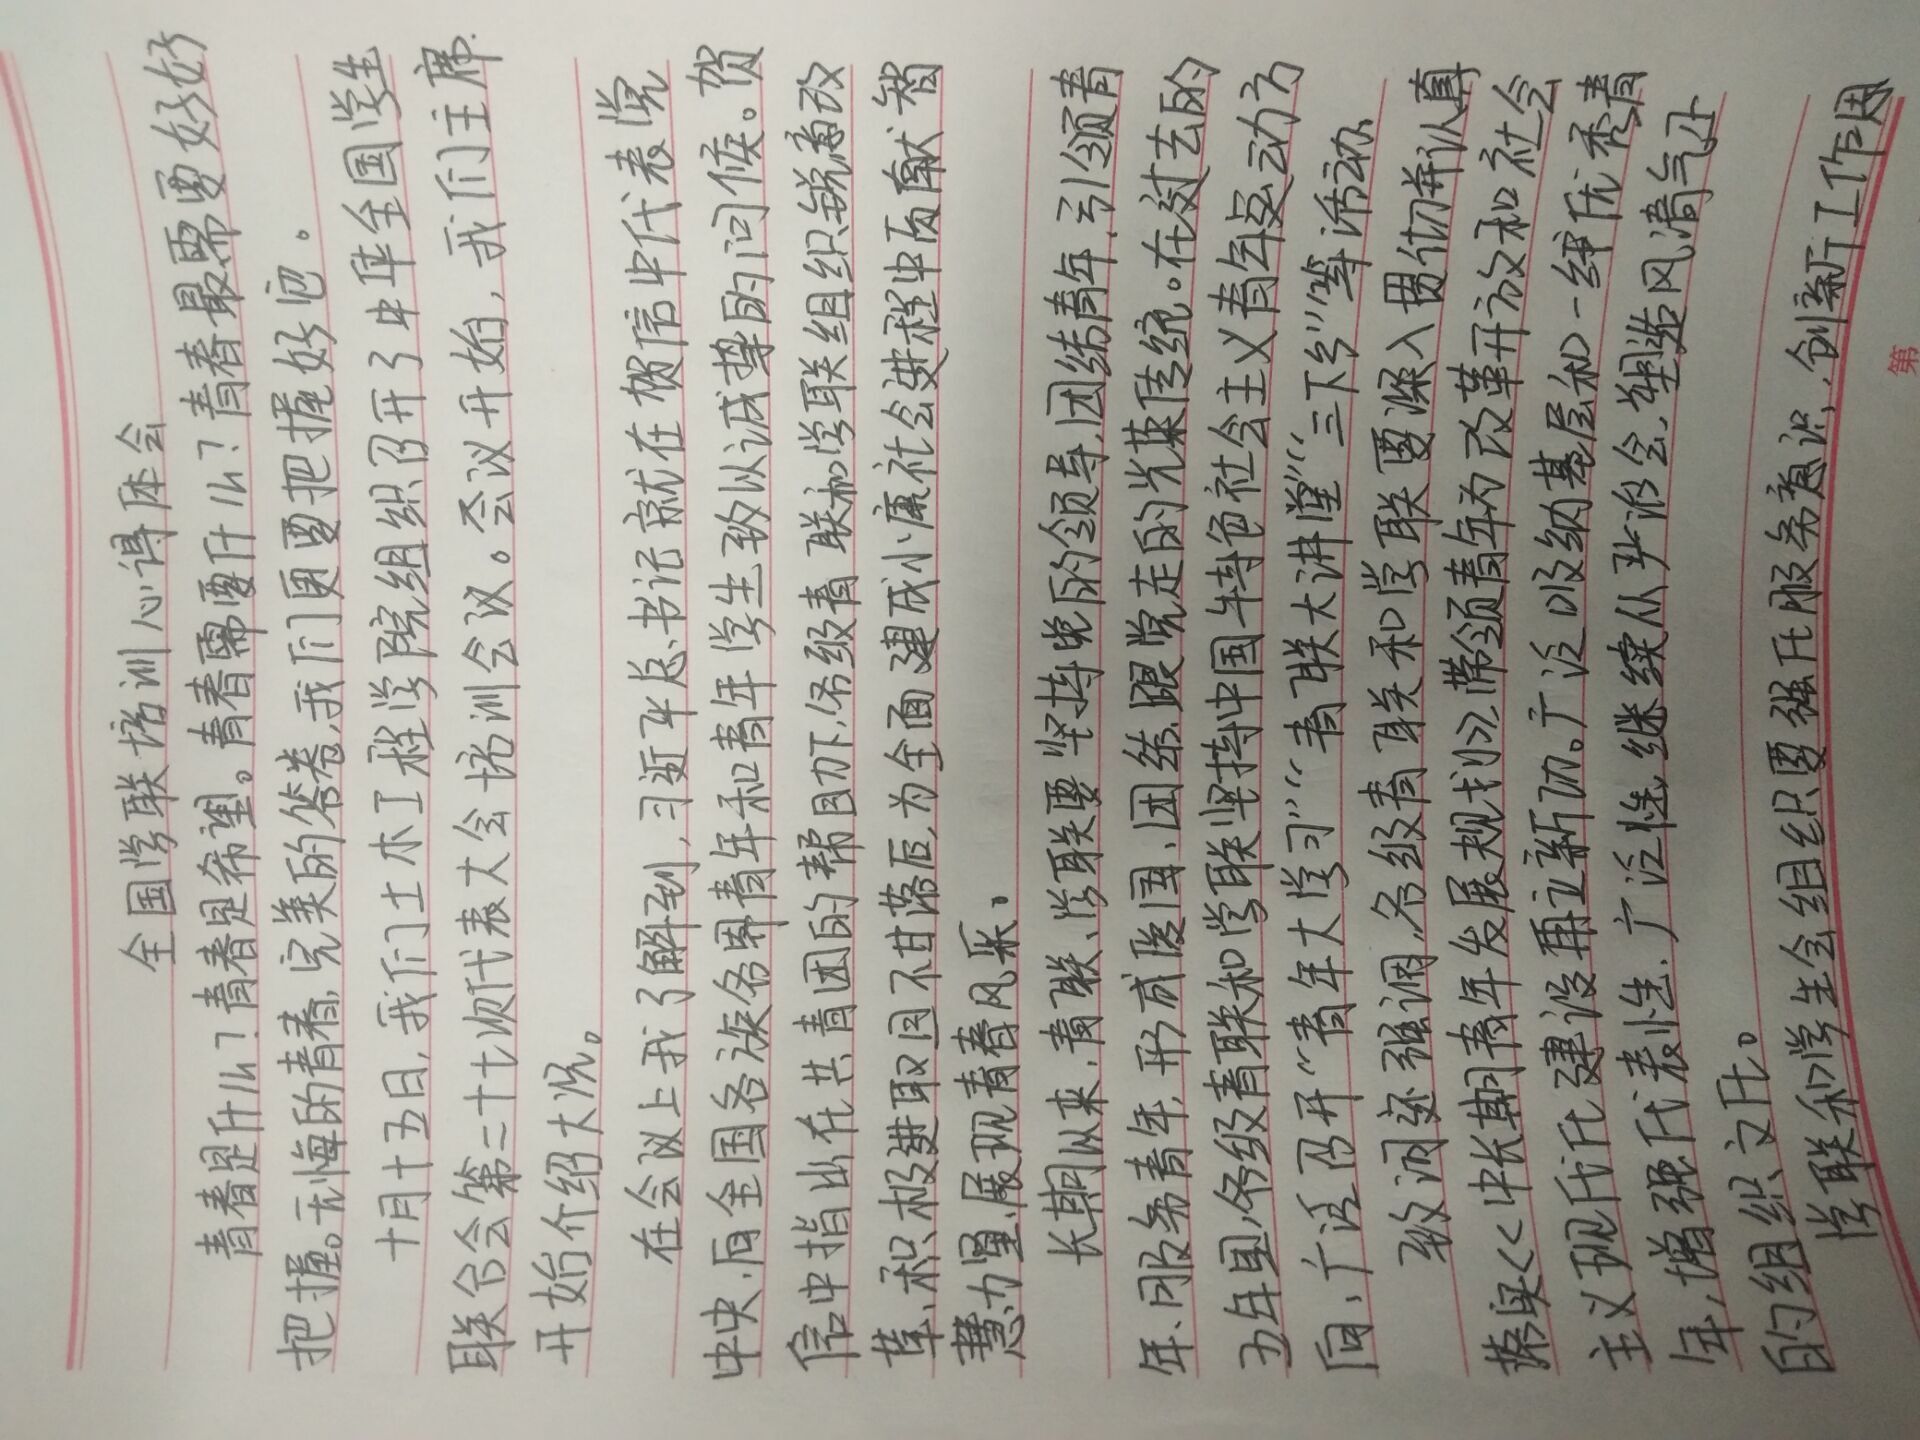 全国学联培训心得体会
青春是什么?青春是希望。青春需要什么?青春最需要好好
把握。无悔的青春,完美的答卷,我们更要把握好它。
十月十五日,我们土木工程学院组织召开了中华全国学生
联合会第二十七次代表大会培训会议。会议开始,我们主席
开始介绍大况。
在会议上我了解到,习近平总书记就在贺信中代表党
中央,向全国各族各界青年和青年学生致以诚挚的问候。贺
信中指出在共青团的帮助下,各级青联和学联组织锐意改
革、积极进取因不甘落后,为全面建成小康社会进程中贡献智
慧力量,展现青春风采。
长期以来,青联、学联要坚持党的领导,团结青年,引领青
年、服务青年,形成爱国、团结、跟党走的光荣传统。在过去的
五年里,各级青联和学联坚持中国特色社会主义青年运动方
向,广泛召开“青年大学习”“青联大讲堂”“三下乡”等活动
致词还强调,各级青联和学联要深入贯彻并认真
落实《中长期青年发展规划》,带领青年为改革开放和社会
主义现代化建设再立新功。广泛吸纳基层和一线优秀青
年,增强代表性、广泛性,继续从严治会,塑造风清气正
的组织文化。
学联和学生会组织要强化服务意识,创新工作思
第